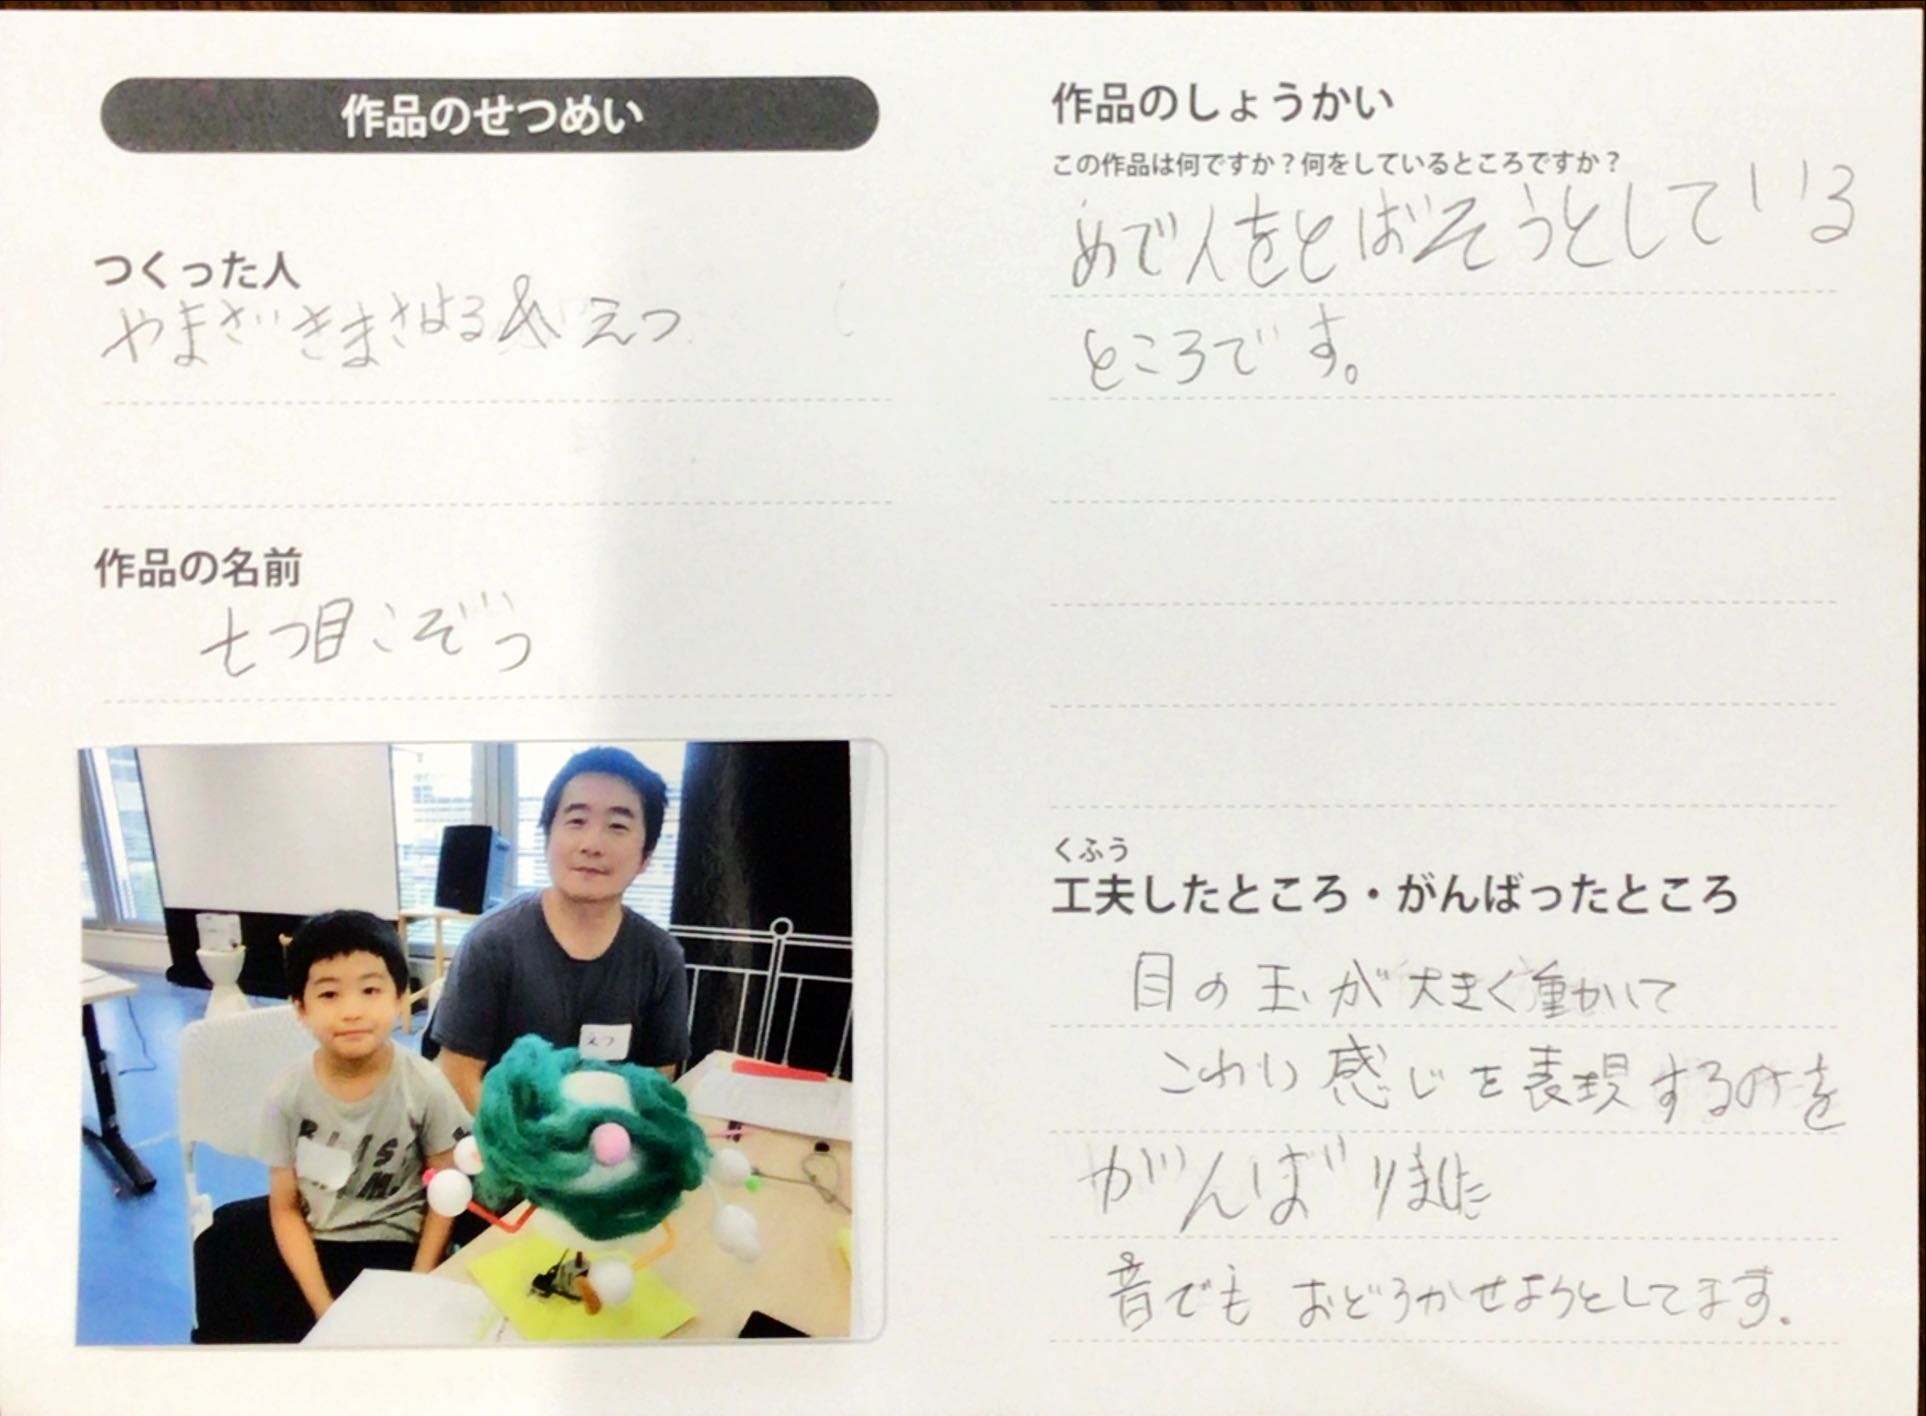 作品のせつめい
つくった人
やまざきまさはる & えつ
作品の名前
七つ目こぞう
えつ
作品のしょうかい
この作品は何ですか？何をしているところですか？
めで人をとばそうとしている
ところです。
くふう
工夫したところ・がんばったところ
目の玉が大きく動いて
こわい感じを表現するのを
がんばりました
音でも おどろかせようとしてます.